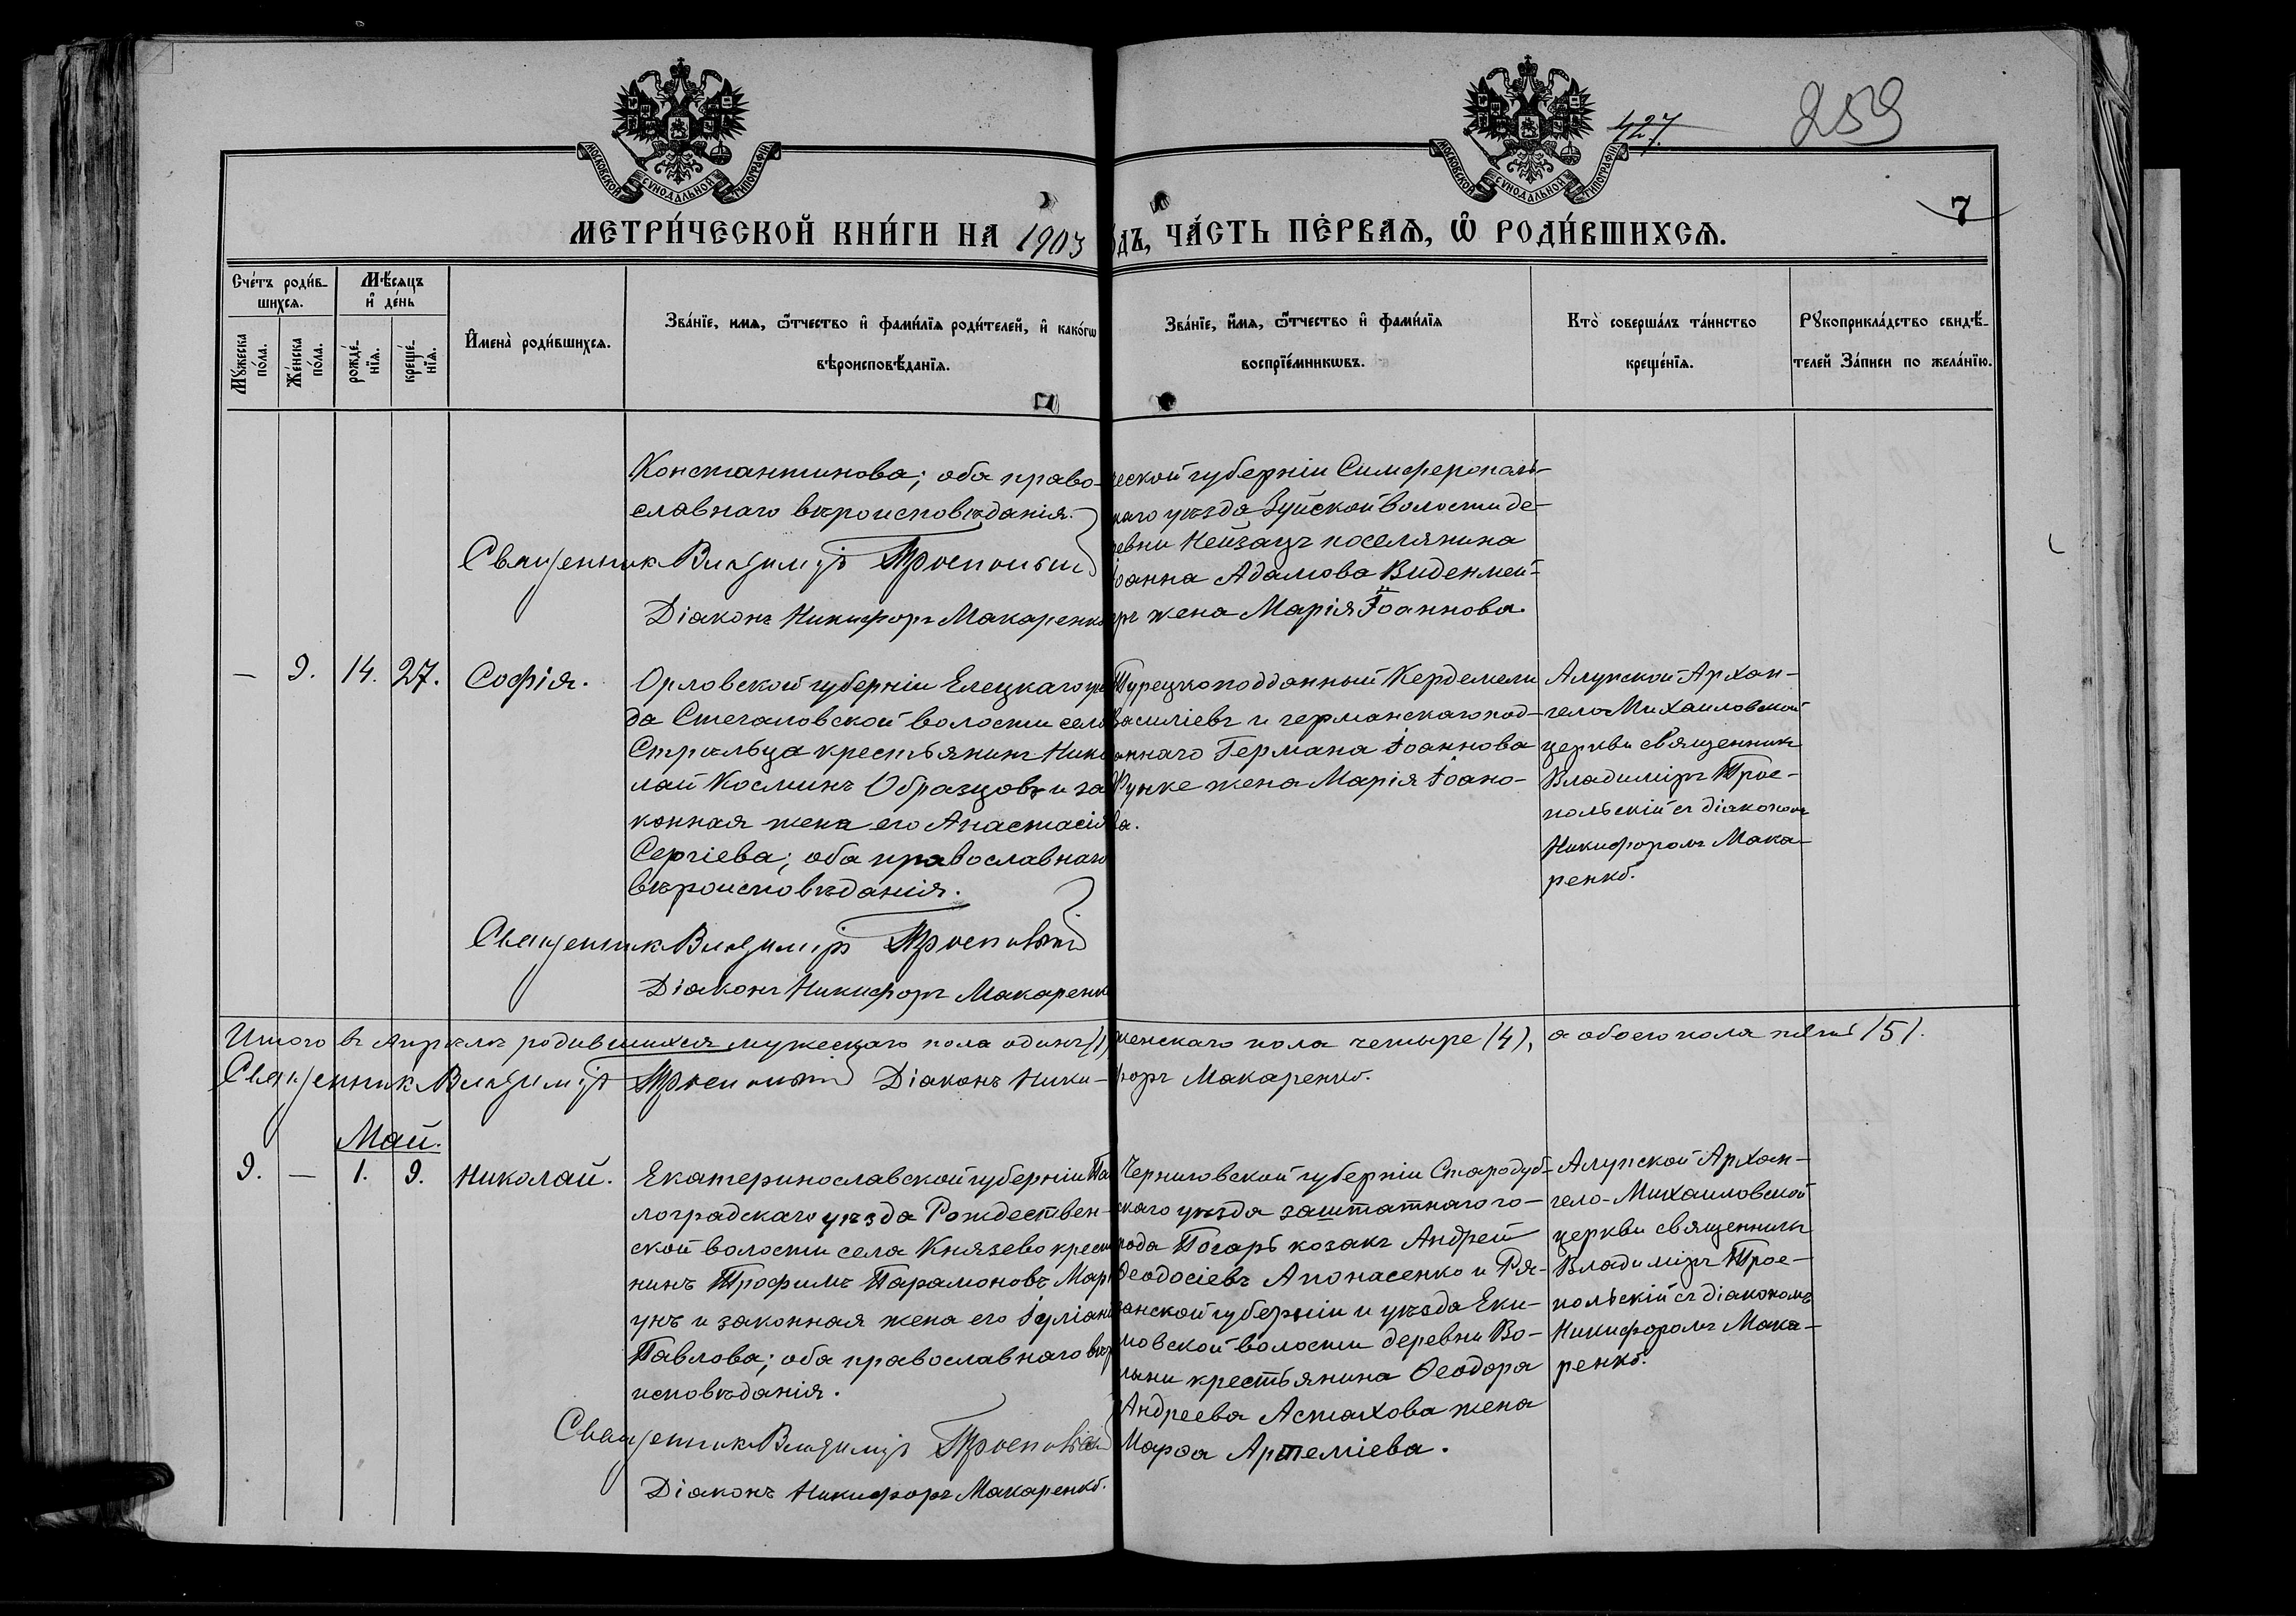 МОСКОВСКОЙ СѴНОДАЛЬНОЙ ТИПОГРАФІИ
МОСКОВСКОЙ СѴНОДАЛЬНОЙ ТИПОГРАФІИ
427
259
7
МЕТРИ́ЧЕСКОЙ КНИ́ГИ НА 1903
дъ, ЧА́СТЬ ПЕ́РВАѦ, Ѡ҆ РОДИ́ВШИХСѦ.
Сче́тъ роди́в-
шихсѧ.
Мꙋжеска по́ла.
Же́нска по́ла.
Мѣ́сѧцъ
и҆ де́нь
рожде́-
нїѧ.
креще́-
нїѧ.
И҆мена̀ роди́вшихсѧ.
Зва́нїе, имѧ, ѻ҆́тчество и҆ фами́лїѧ роди́телей, и҆ како́гѡ
вѣроисповѣ́данїѧ.
Зва́нїе, и҆́мѧ, ѻ҆́тчество и҆ фами́лїѧ
воспрїе́мникѡвъ.
Кто̀ соверша́лъ та́инство
креще́нїѧ.
Рꙋкоприкла́дство свидѣ́-
телей За́писи по жела́нїю.
Константинова; оба право-
славнаго вѣроисповѣданія.
Священник Владиміръ Троепольскій
Діаконъ Никифоръ Макаренко
ческой губерніи Симферополь-
каго уѣзда Зуйской волости де-
ревни Нейзацъ поселянина
Іоанна Адамова Виденмей-
еръ жена Марія Іоаннова.
— 9. 14. 27. Софія.
Орловской губерніи Елецкаго уѣз
да Стегаловской волости села
Стрѣльца крестьянинъ Нико
лай Косминъ Образцовъ и за
конная жена его Анастасія
Сергіева; оба православнаго
вѣроисповѣданія.
Священник Владиміръ Троепольскій
Діаконъ Никифоръ Макаренко
Турецкоподданный Кердемели
Василіевъ и германскаго под-
даннаго Германа Іоаннова
Функе жена Марія Іоано-
ва.
Алупской Архан-
гело-Михаиловской
церкви священникъ
Владиміръ Трое-
польскій съ діакономъ
Никифоромъ Мака-
ренко.
Итого въ Апрѣлѣ родившихся мужескаго пола одинъ (1), женскаго пола четыре (4), а обоего пола пять (5).
Священник Владиміръ Троепольскій Діаконъ Ники-форъ Макаренко.
Май.
9. — 1. 9. Николай.
Екатеринославской губерніи Па
лоградскаго уѣзда Рождествен-
ской волости села Князево кресть
нинъ Трофимъ Парамоновъ Мар
унъ и законная жена его Іуліанія
Павлова; оба православнаго вѣр
исповѣданія.
Священник Владиміръ Троепольскій
Діаконъ Никифоръ Макаренко.
Черниговской губерніи Стародуб-
скаго уѣзда заштатнаго го-
рода Погаръ козакъ Андрей
Ѳеодосіевъ Апонасенко и Ря-
занской губерніи и уѣзда Еки-
мовской волости деревни Во-
лыни крестьянина Ѳеодора
Андреева Астахова жена
Марѳа Артеміева.
Алупской Архан-
гело-Михаиловской
церкви священникъ
Владиміръ Трое-
польскій съ діакономъ
Никифоромъ Мака-
ренко.